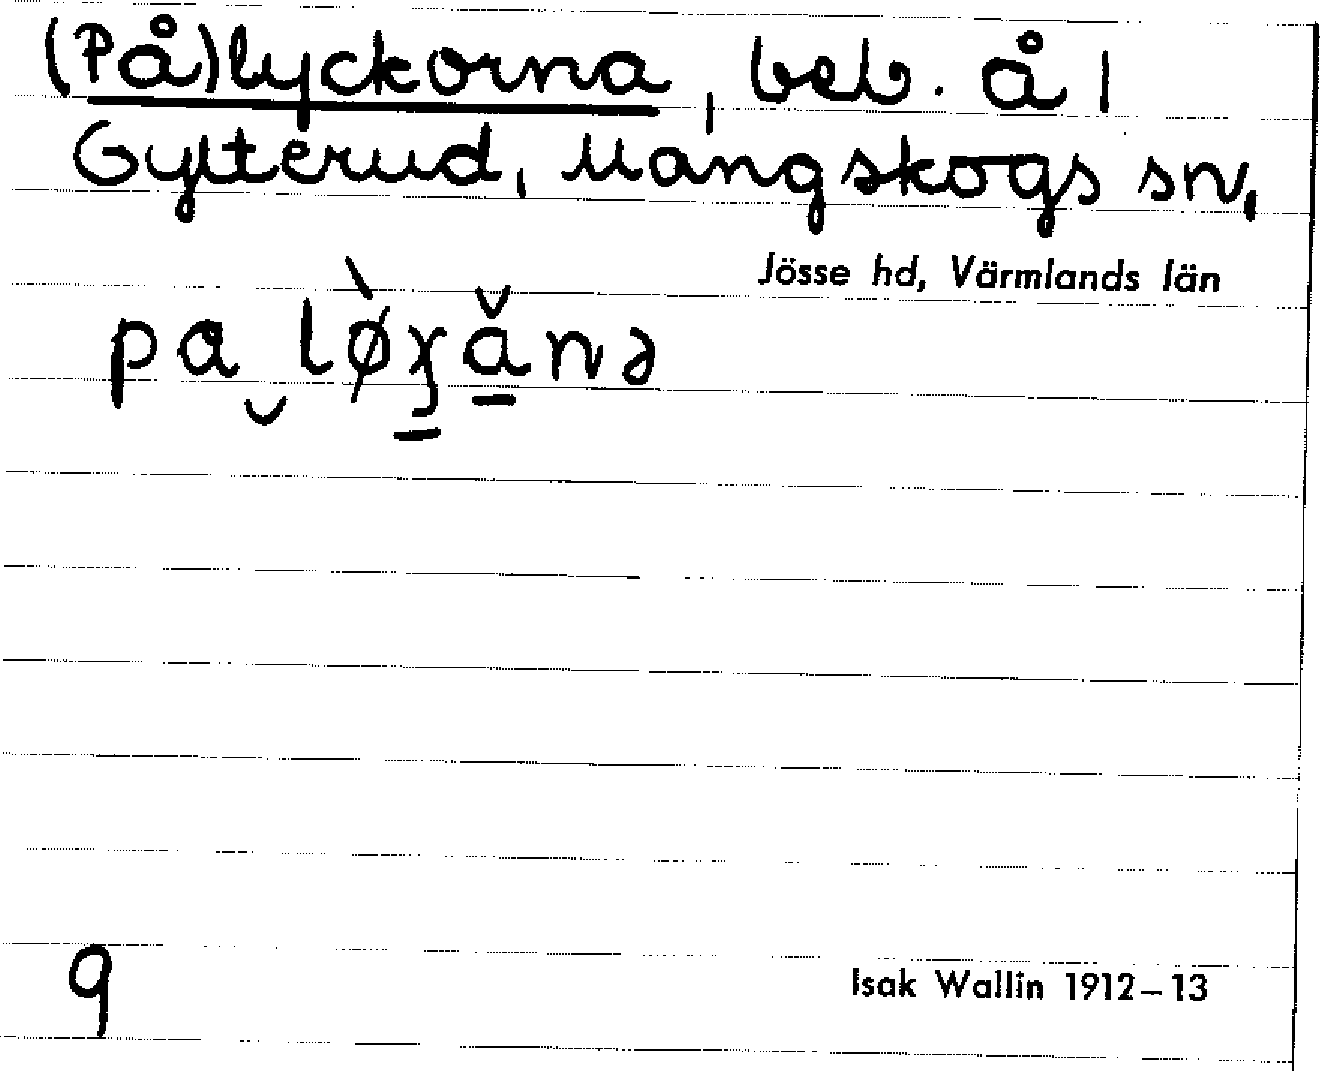 (På)lyckorna, beb. å 1
Gylterud, Mangskogs sn,
Jösse hd, Värmlands län
pa
9
Isak Wallin 1912–13